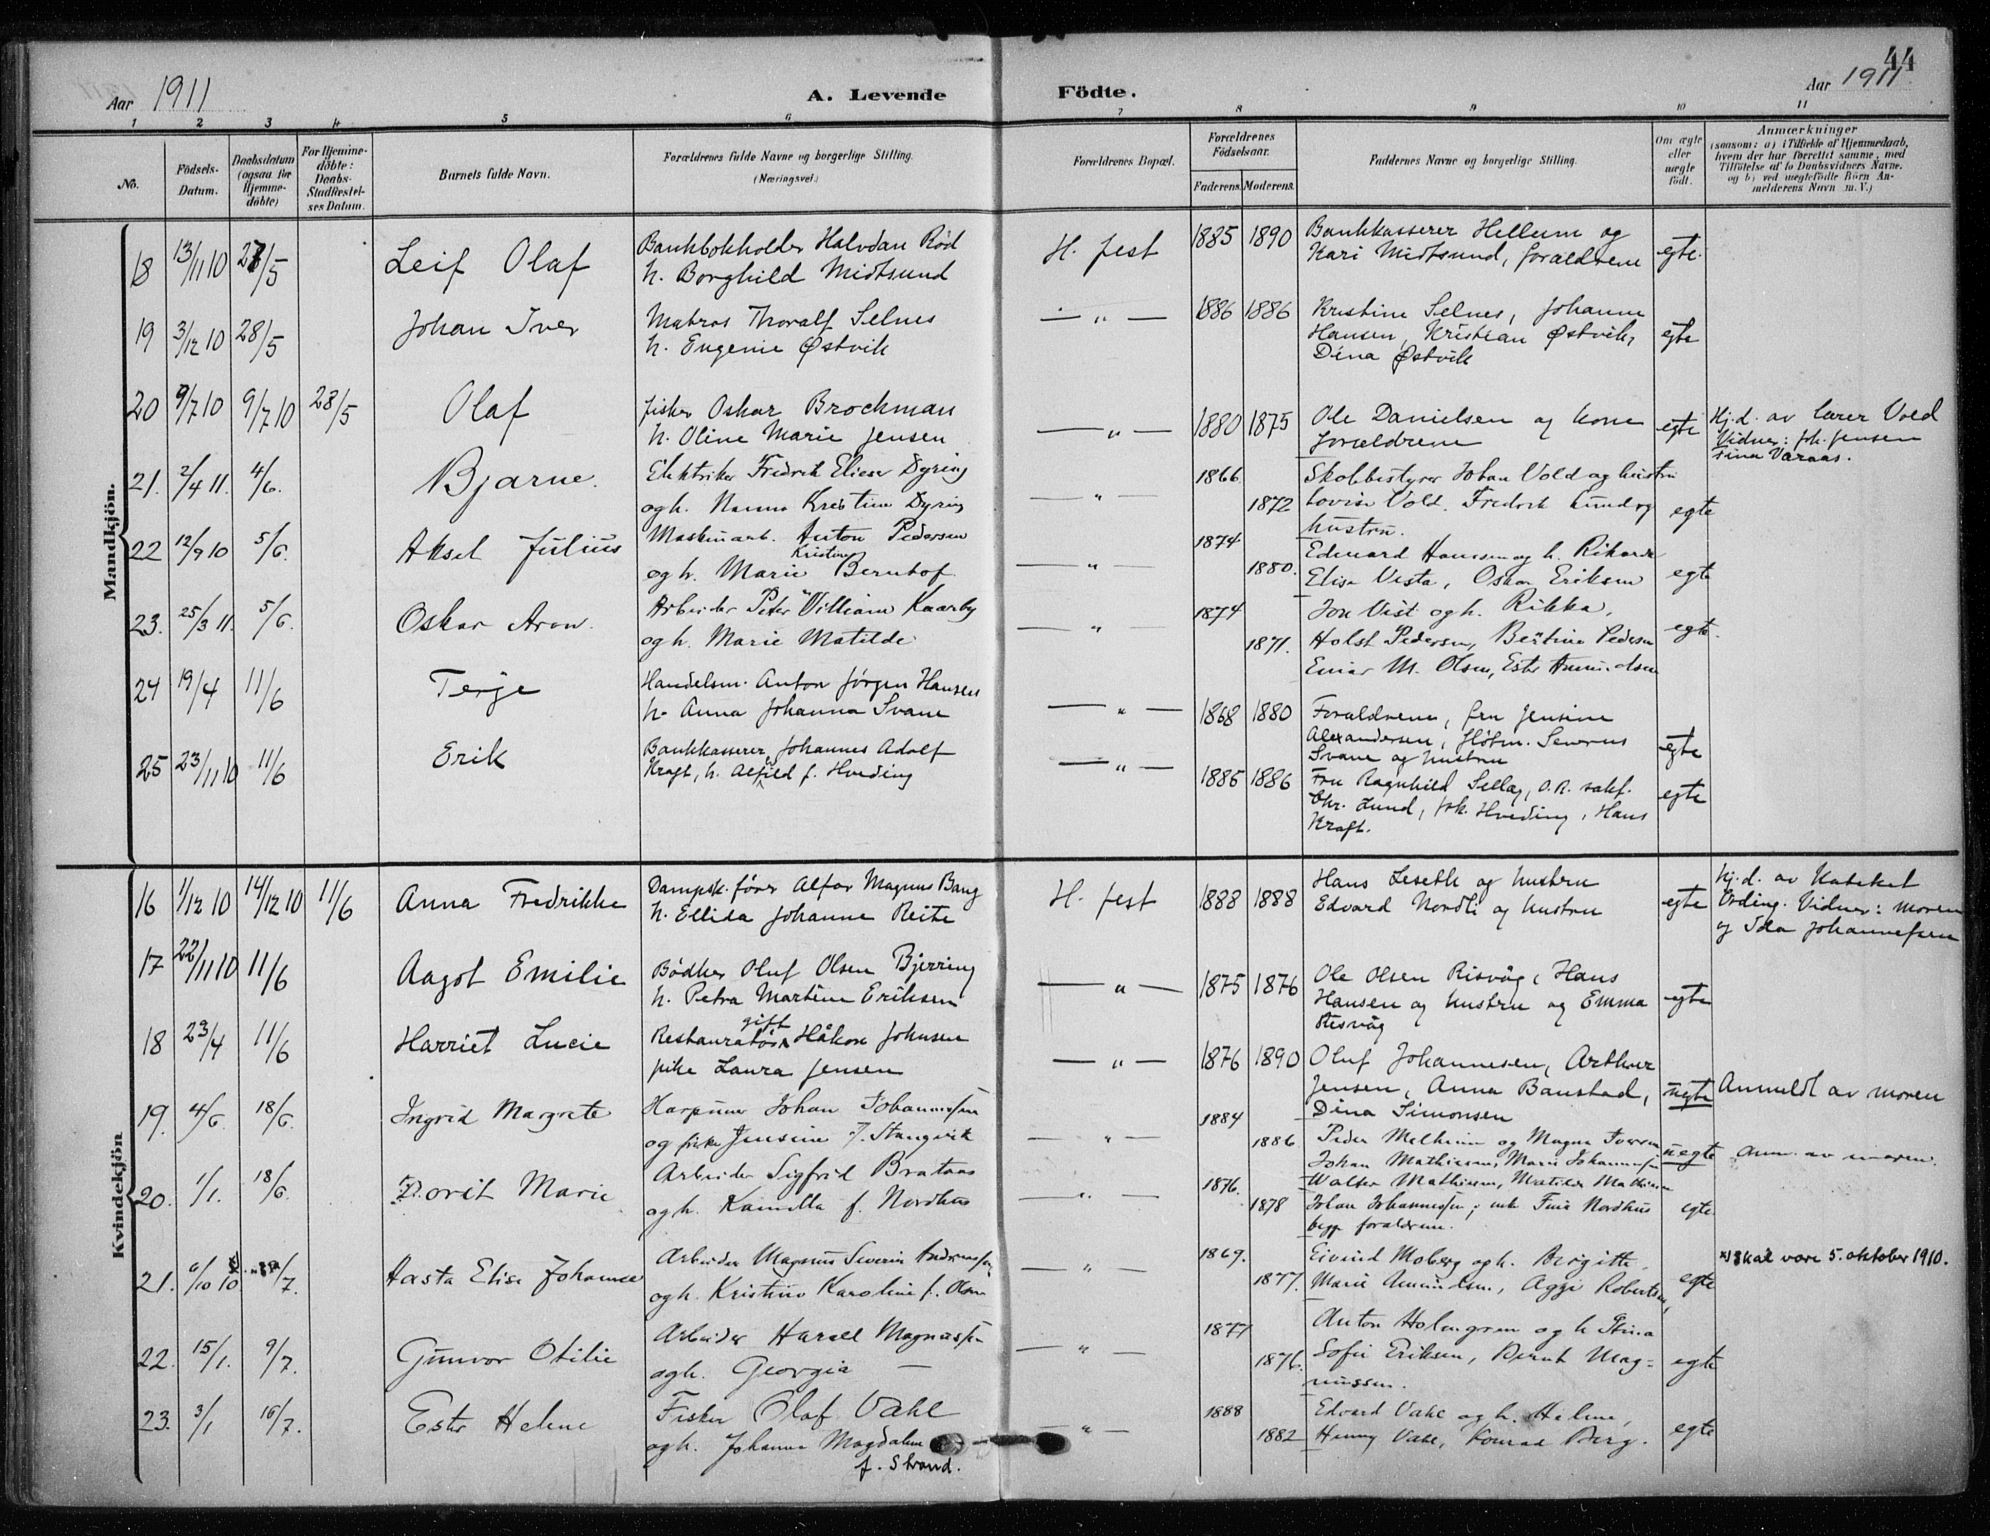 44
Aar 1911
A. Levende Födte.
Aar 1911
1 2 3 4 5 6 7 8 9 10 11
No.
Födsels-Datum.
Daabsdatum (ogsaa for Hjemme-döbte)
For Hjemme-döbte: Daabs-Stadfæstel-ses Datum.
Barnets fulde Navn.
Forældrenes fulde Navne og borgerlige Stilling. (Næringsvei.)
Forældrenes Bopæl.
Forældrenes Födselsaar.
Faderens. Moderens.
Faddernes Navne og borgerlige Stilling.
Om ægte eller uægte födt.
Anmærkninger
(saasom: a) i Tilfælde af Hjemmedaab, hvem der har forrettet samme, med Tilföielse af to Daabsvidners Navne. og b) ved uægtefödte Börn An-melderens Navn m. V.)
Mandkjön.
18 13/11 10 28/5 Leif Olaf Bankbokholder Halvdan Rød H. fest 1885 1890 Bankkasserer Hellum og egte.
h. Borghild Midtsund Kari Midtsund, forældrene
19 3/12 10 28/5 Johan Iver Matros Thoralf Selnes — " — 1886 1886 Kristine Selnes, Johanne egte
h. Eugenie Østvik Hansen, Kristian Østvik,
Dina Østvik
20 9/7 10 9/7 10 28/5 Olaf fisker Oskar Brockman — " — 1880 1875 Ole Danielsen og kone egte Hj.d. av lærer Vold
h. Oline Marie Jensen Forældrene Vidner: Joh. Jensen
21. 2/4 11. 4/6. Bjarne. Elektriker Fredrik Elieser Dyring — " — 1866 Skolebestyrer Johan Vold og hustru
ogh. Nanna Kristine Dyring 1872 Lovise Vold. Fredrik Lund og egte
hustru.
22 12/9 10 5/6. Aksel Julius Maskinarb. Anton Pedersen — " — 1874 Edvard Hansen og h. Rikarda
ogh. Marie Kristine Berntof 1880. Elise Vesta, Oskar Eriksen egte
23. 25/3 11. 5/6. Oskar Aron. Arbeider Peter William Kaarby " 1874 Jon Vist ogh. Rikka,
ogh. Marie Matilde 1871. Holst Pedersen, Bertine Pedersen egte.
Einar M. Olsen, Ester Amundsen
24 19/4 11/6 Terje Handelsm. Anton Jørgen Hansen — " — 1868 1880 Forældrene, fru Jensine
h. Anna Johanna Svane Alexandersen, Severus egte
Svane og hustru
25 23/11 10 11/6 Erik Bankkasserer Johannes Adolf — " — 1885 1886 Fru Ragnhild Selläg, O.R. sakf. egte
Kraft, h. Alfild f. Hveding Chr. Lund, Joh. Hveding, Hans
Kraft.
Kvindekjön
16 1/12 10 14/12 10 11/6 Anna Fredrikke Dampsk. fører Alfar Magnus Bang H. fest 1888 1888 Hans Leseth og hustru egte Hj.d. av Kateket
h. Ellida Johanne Reite Edvard Nordli og hustru Ording. Vidner: moren
og Ida Johannessen
17 22/11 10 11/6 Aagot Emilie Bødker Oluf Olsen Bjerring — " — 1875 1876 Ole Olsen Risvåg, Hans egte
h. Petra Martine Eriksen Hansen og hustru og Emma
Risvåg
18 23/4 11/6 Harriet Lucie Restauratør gift Håkon Johnsen — " — 1876 1890 Oluf Johannesen, Arthur uegte Anmeldt av moren
pike Laura Jensen Jensen, Anna Banstad,
Dina Simonsen
19. 4/6. 18/6. Ingrid Margrete Harpuner Johan Johannessen — " — 1884
og pike Jensine J. Stangvik 1886. Peder Melheim og Magna uegte anm. av moren.
Johan Mathiesen, Marie Johannessen
20. 1/1. 18/6. Dorit Marie Arbeider Sigfrid Brataas — " — 1876. Walter Mathisen, Matilde Mathisen
ogh. Kamilla f. Nordhus 1878 Johan Johannessen, enke Fina Nordhus egte
begge forældrene.
21. 6/10 10 /7. Aasta Elise Johanne Arbeider Magnus Severin Andreassen " 1869. Eivind Moberg ogh. Birgitte, x) skal være 5. oktober 1910.
ogh. Kristine Karoline f. Olsen 1877. Marie Amundsen, Aggi Robertsen, egte
22. 15/1. 9/7. Gunvor Otilie Arbeider Harald Magnussen — " — 1877 Anton Holmgren og h Stina
ogh. Georgia — 1876. Sofie Eriksen, Bernt Mag= egte
nussen.
23. 3/1 16/7. Ester Helene Fisker Olaf Vahl — " — 1888 Edvard Vahl ogh. Helene,
ogh. Johanna Magdalene 1882 Henny Vahl, Konrad Berg. egte
f. Strand.